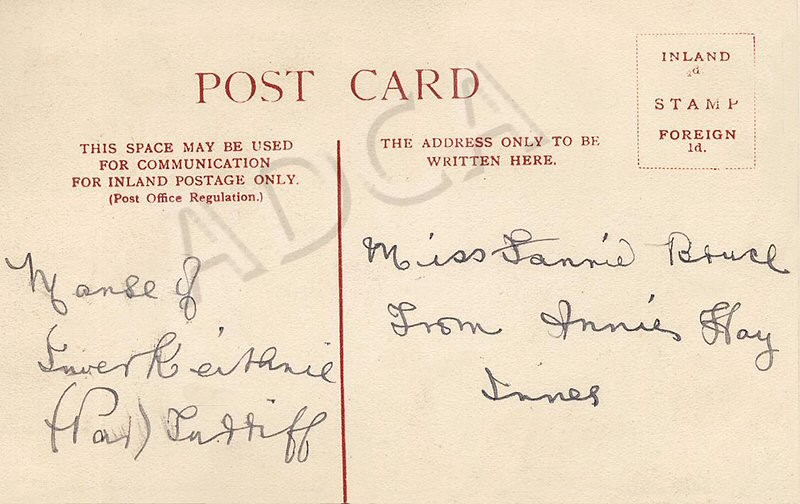 POST CARD
INLAND
½d.
STAMP
FOREIGN
1d.
THIS SPACE MAY BE USED
FOR COMMUNICATION
FOR INLAND POSTAGE ONLY.
(Post Office Regulation.)
THE ADDRESS ONLY TO BE
WRITTEN HERE.
Manse of
InverKeithnie
(Par) Turriff
Miss Fannie Bruce
From Annie Hay
Innes
ADCA